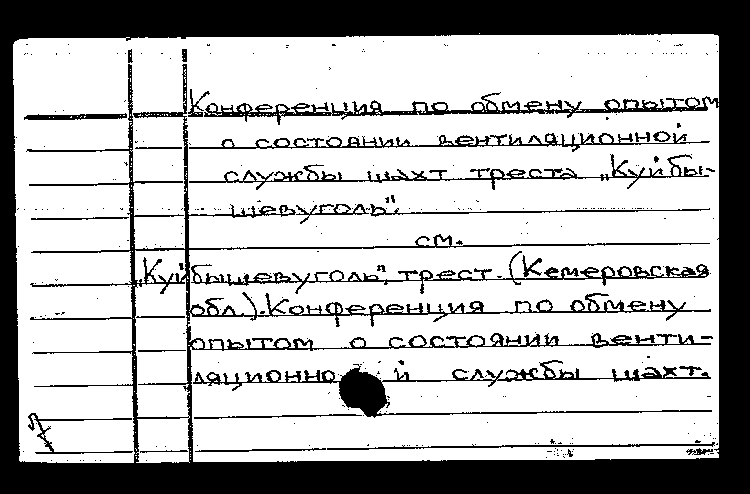 Конференция по обмену опытом
о состоянии вентиляционной
службы шахт треста „Куйбы-
шевуголь".
см.
„Куйбышевуголь", трест. (Кемеровская
обл.). Конференция по обмену
опытом о состоянии венти-
ляционной службы шахт.